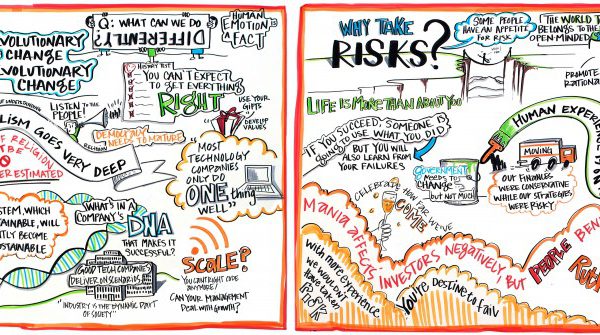 VOLUTIONARY
CHANGE
VOLUTIONARY
CHANGE
Q: WHAT CAN WE DO
DIFFERENTLY?
HUMAN
EMOTION IS
FACT
HISTORY TEST
YOU CAN'T EXPECT
TO GET EVERYTHING
RIGHT
LISTEN TO
THE PEOPLE!
USE YOUR
GIFTS
DEVELOP
VALUES
DEMOCRACY
NEEDS TO MATURE
RELIGION
LISM GOES VERY DEEP
OF RELIGION
BE
ERESTIMATED
"MOST
TECHNOLOGY
COMPANIES
ONLY DO
ONE thing
WELL"
STEM, WHICH
STAINABLE, WILL
TLY BECOME
STAINABLE
WHAT'S IN A
COMPANY'S
DNA
THAT MAKES IT
SUCCESSFUL?
GOOD TECH COMPANIES
DELIVER ON SCENARIOS
"INDUSTRY IS THE DYNAMIC PART
OF SOCIETY"
SCALE?
YOU CAN'T RIGHT CODE
ANYMORE!
CAN YOUR MANAGEMENT
DEAL WITH GROWTH?
WHY TAKE
RISKS?
SOME PEOPLE
HAVE AN APPETITE
FOR RISK
THE WORLD T
BELONGS TO THE
OPEN-MINDED
PROMOTE
RATIONA
LIFE IS MORE THAN ABOUT YOU
IF YOU SUCCEED, SOMEONE IS
going to USE WHAT YOU DID
BUT YOU WILL
ALSO LEARN FROM
YOUR FAILURES
GOVERNMENT
NEEDS TO
CHANGE
but NOT MUCH
HUMAN EXPERIEN
MOVING
OUR FINANCES
WERE CONSERVATIVE
WHILE OUR STRATEGIES
WERE RISKY
CELEBRATE HOW FAR WE'VE
COME
MANIA AFFECTS INVESTORS NEGATIVELY, BUT
PEOPLE BEN
with more experience
we wouldn't
have taken
You're destine to fail